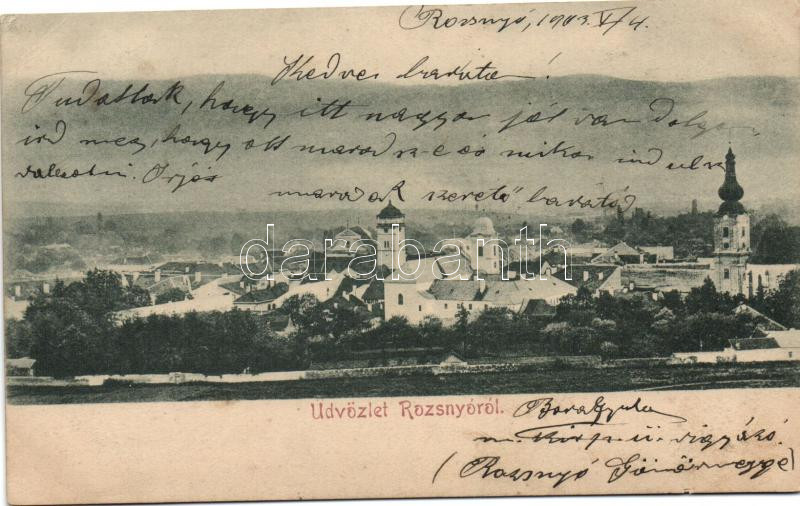 Rozsnyó, 1903. V/4.
Kedves barátom!
Tudatlak, hogy itt nagyon jól van dolgom
ird meg, hogy ott marad sz-e és mikor indulsz
valahová. Irjál
maradok szerető barátod
darabanth
Üdvözlet Rozsnyóról.
Bora Gyula
m. kir. p. ü. vigyázó.
(Rozsnyó Gömörmegye)